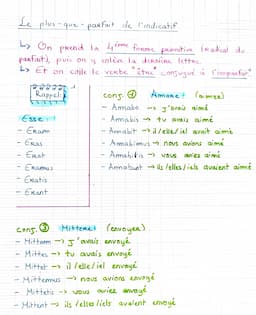 Le plus-que-parfait de l'indicatif
↳ On prend la 4ème forme primitive (radical de
parfait), puis on y enlève la dernière lettre.
↳ Et on colle le verbe "être" conjugué à l'imparfait.
Rappel:
Esse:
- Eram
- Eras
- Erat
- Eramus
- Eratis
- Erant
conj. ① Amare: (aimer)
- Amabo → j'avais aimé
- Amabis → tu avais aimé
- Amabit → il/elle/iel avait aimé
- Amabimus → nous avions aimé
- Amabitis → vous aviez aimé
- Amabunt → ils/elles/iels avaient aimé
conj. ③ Mittere: (envoyer)
- Mittam → J'avais envoyé
- Mittes → tu avais envoyé
- Mittet → il/elle/iel envoyé
- Mittemus → nous avions envoyé
- Mittetis → vous aviez envoyé
- Mittent → ils/elles/iels avaient envoyé